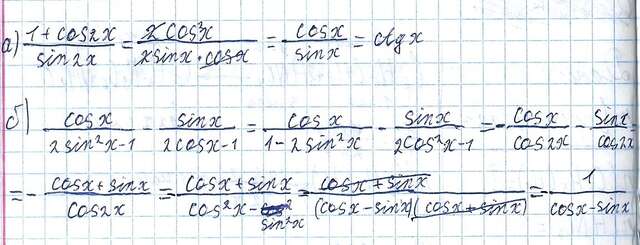 а) (1+cos2x)/(sin2x) = (2cos²x)/(2sinx·cosx) = cosx/sinx = ctgx
б) cosx/(2sin²x-1) - sinx/(2cosx-1) = cosx/(1-2sin²x) - sinx/(2cos²x-1) = -cosx/cos2x - sinx/cos2x =
= -(cosx+sinx)/cos2x = (cosx+sinx)/(cos²x-sin²x) = (cosx+sinx)/((cosx-sinx)(cosx+sinx)) = 1/(cosx-sinx)